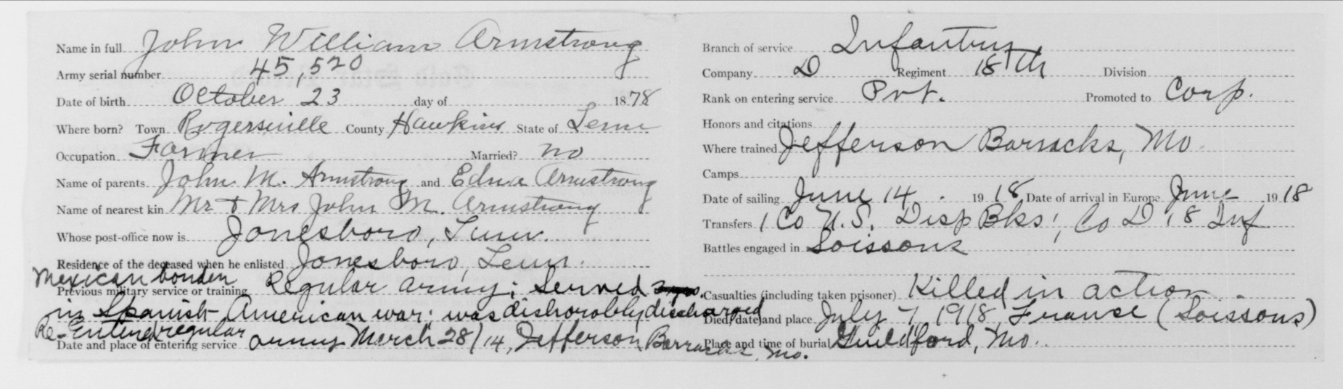 Name in full John William Armstrong
Army serial number 45,520
Date of birth October 23 day of 1878
Where born? Town Rogersville County Hawkins State of Tenn
Occupation Farmer Married? no
Name of parents John M. Armstrong and Edna Armstrong
Name of nearest kin Mr + Mrs John M. Armstrong
Whose post-office now is Jonesboro, Tenn.
Residence of the deceased when he enlisted Jonesboro, Tenn.
Mexican border
Previous military service or training Regular army; Served
in Spanish-American war; was dishorobly discharged
Re-Entered regular
Date and place of entering service army March 28/14, Jefferson Barracks, Mo.
Branch of service Infantry
Company D Regiment 18th Division
Rank on entering service Pvt. Promoted to Corp.
Honors and citations
Where trained Jefferson Barracks, Mo.
Camps
Date of sailing June 14 1918, Date of arrival in Europe June 1918
Transfers 1 Co U.S. Disp Bks; Co D 18 Inf
Battles engaged in Soissons
Casualties (including taken prisoner) Killed in action
Died, date, and place July 7 1918 France (Soissons)
Place and time of burial Guildford, Mo.